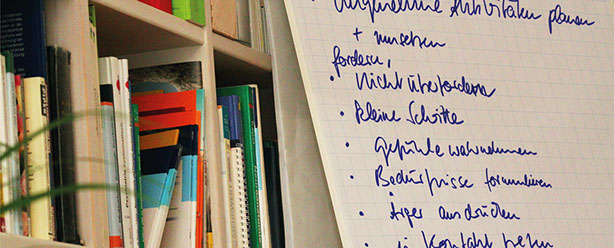 • Angenehme Aktivitäten planen
+ umsetzen
fordern,
• Nicht überfordern
• Kleine Schritte
• Gefühle wahrnehmen
• Bedürfnisse formulieren
• Ärger ausdrücken
Kontakt